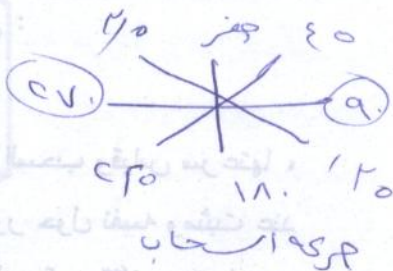 ٣١٥ صفر ٤٥
٢٧٠ ٩٠
٢٢٥ ١٨٠ ١٣٥
حركة السحاب